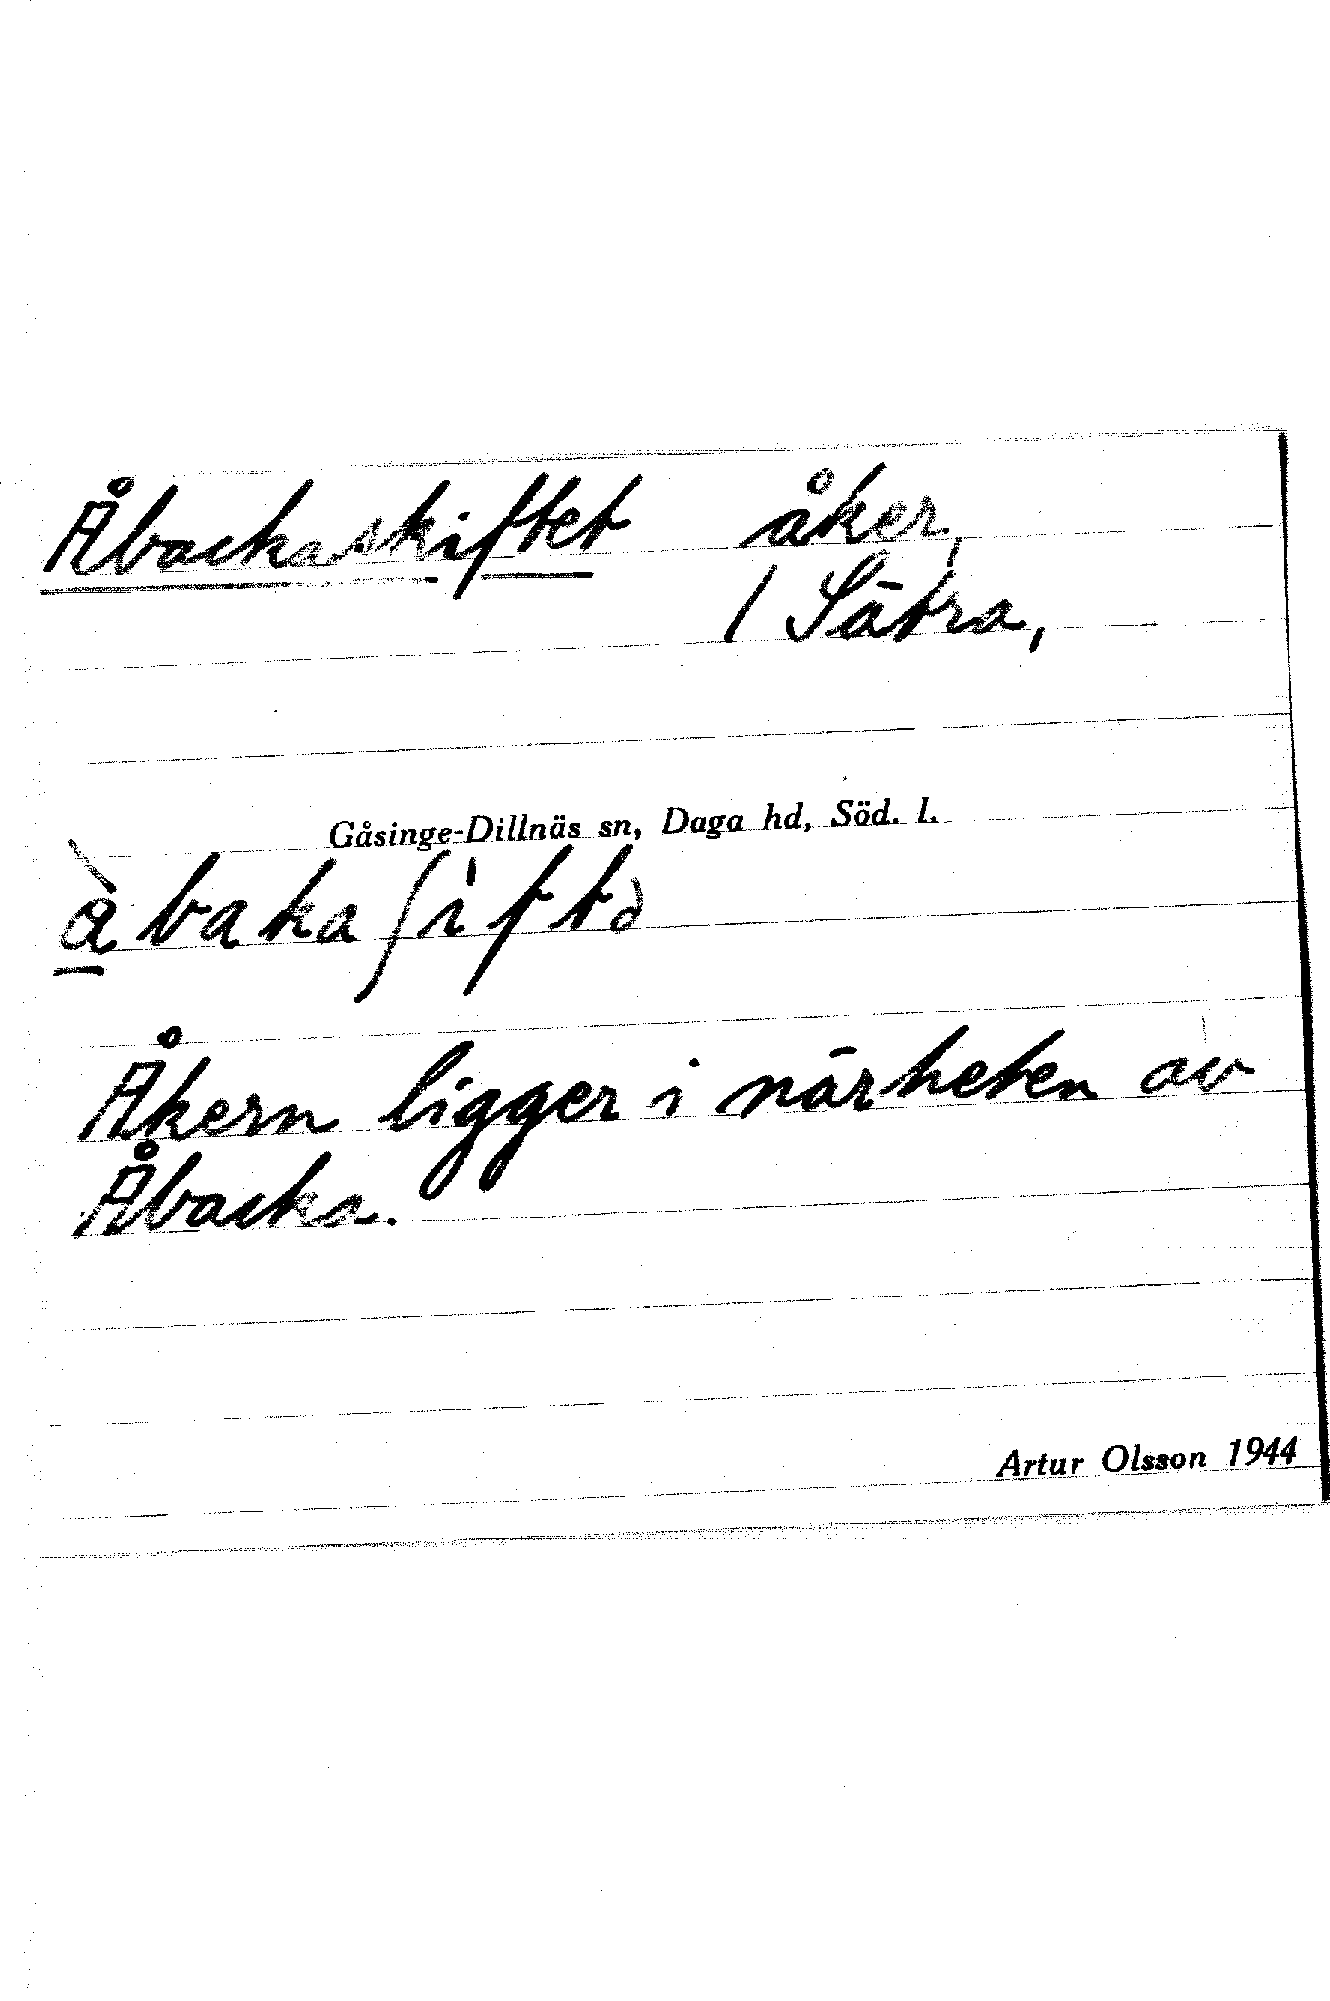 Åbackaskiftet åker,
/ Sätra,
Gåsinge-Dillnäs sn, Daga hd, Söd. l.
à̱bakaʃìftə
Åkern ligger i närheten av
Åbacka.
Artur Olsson 1944